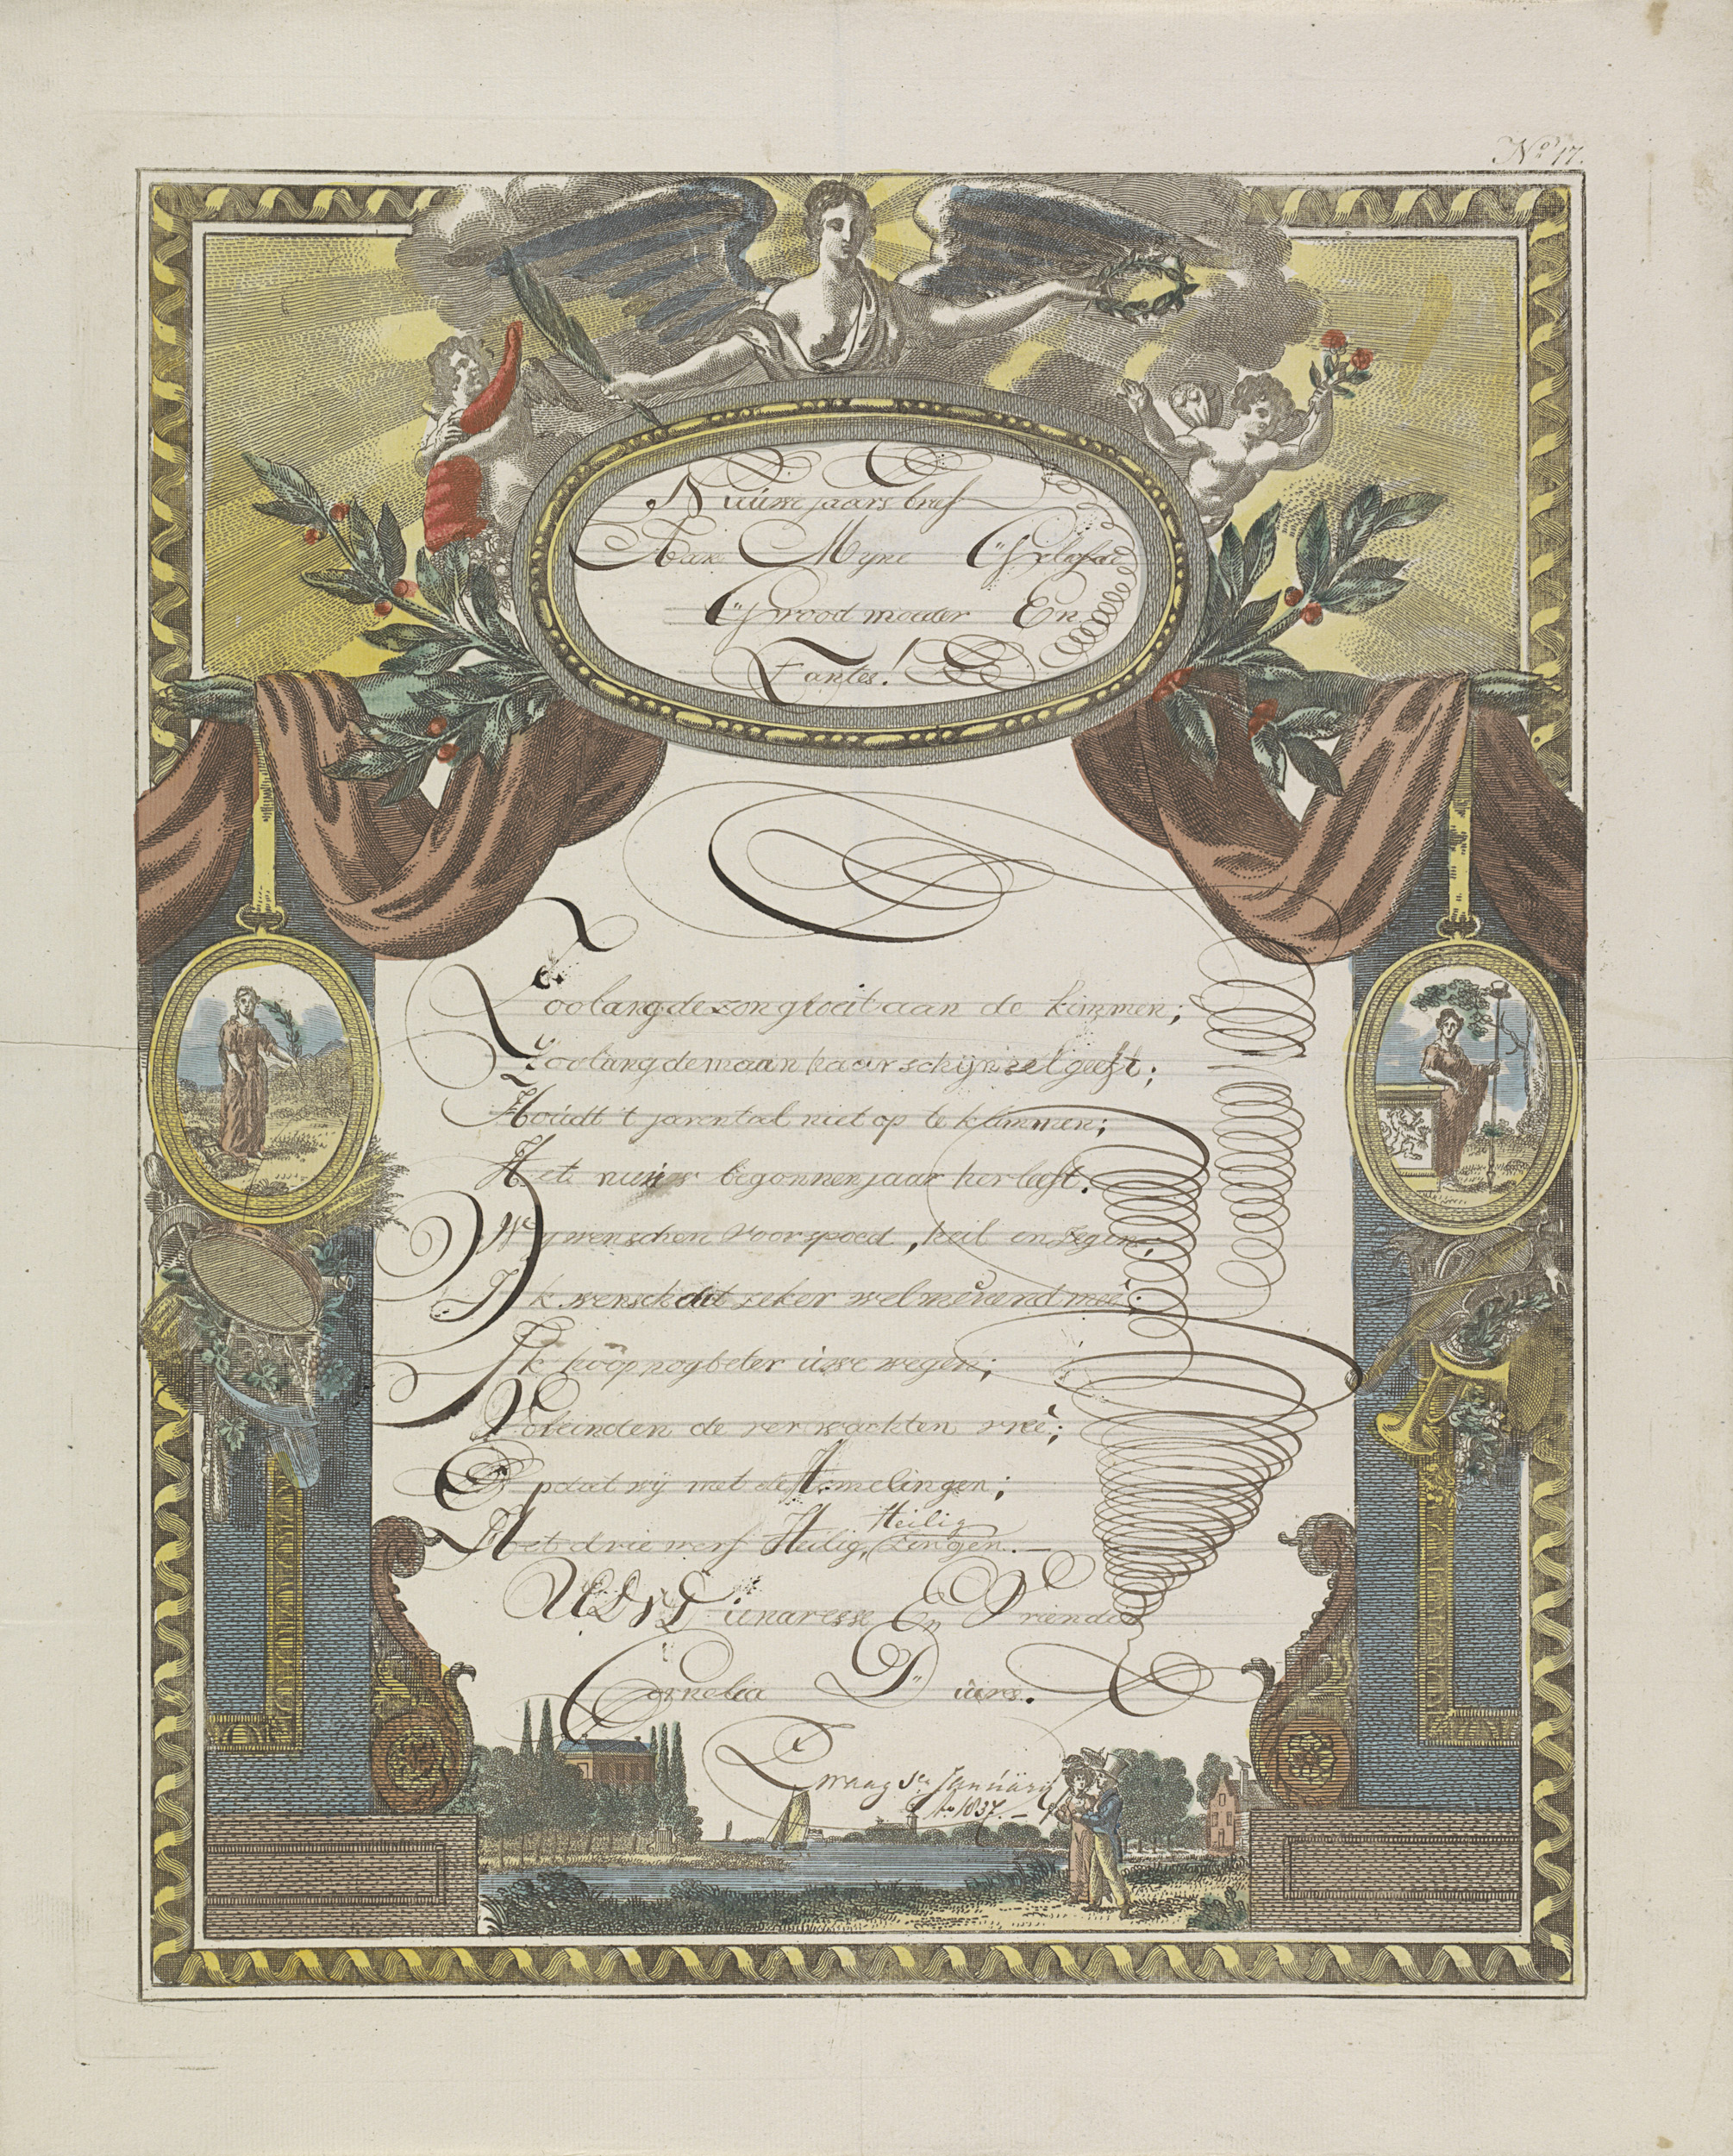 No. 17.
Nieuwe jaars brief
Aan Myne Geliefde
Grood moeder En
Tantes!
Zoo lang de zon gloeit aan de kimmen;
Zoo lang de maan haar schijnzel geeft;
Houdt 't jarental niet op te klimmen;
Het nieuw begonnen jaar herleeft.
Wy wenschen voorspoed, heil en zegen;
Ik wensch dit zeker welmenend meê;
Ik hoop nog beter uwe wegen;
Voleinden de verwachten vreê;
Opdat wij met de Hemelingen;
Het driewerf Heilig, Heilig zingen.
UEDW Dienaresse En Vriendin
Cornelia Duurs.
Zwaag Januúary
Ao 1837.